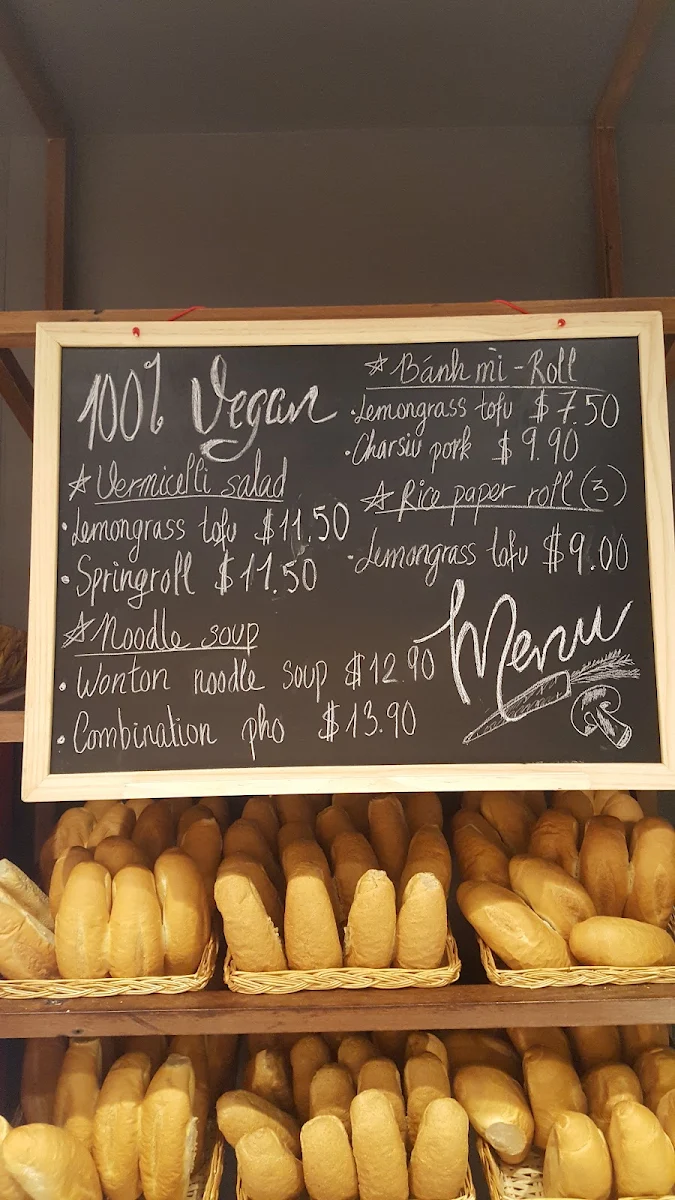 100% Vegan
☆ Vermicelli salad
• Lemongrass tofu $11.50
• Springroll $11.50
☆ Noodle soup
• Wonton noodle soup $12.90
• Combination pho $13.90
☆ Bánh mì - Roll
• Lemongrass tofu $7.50
• Charsiu pork $9.90
☆ Rice paper roll (3)
• Lemongrass tofu $9.00
Menu